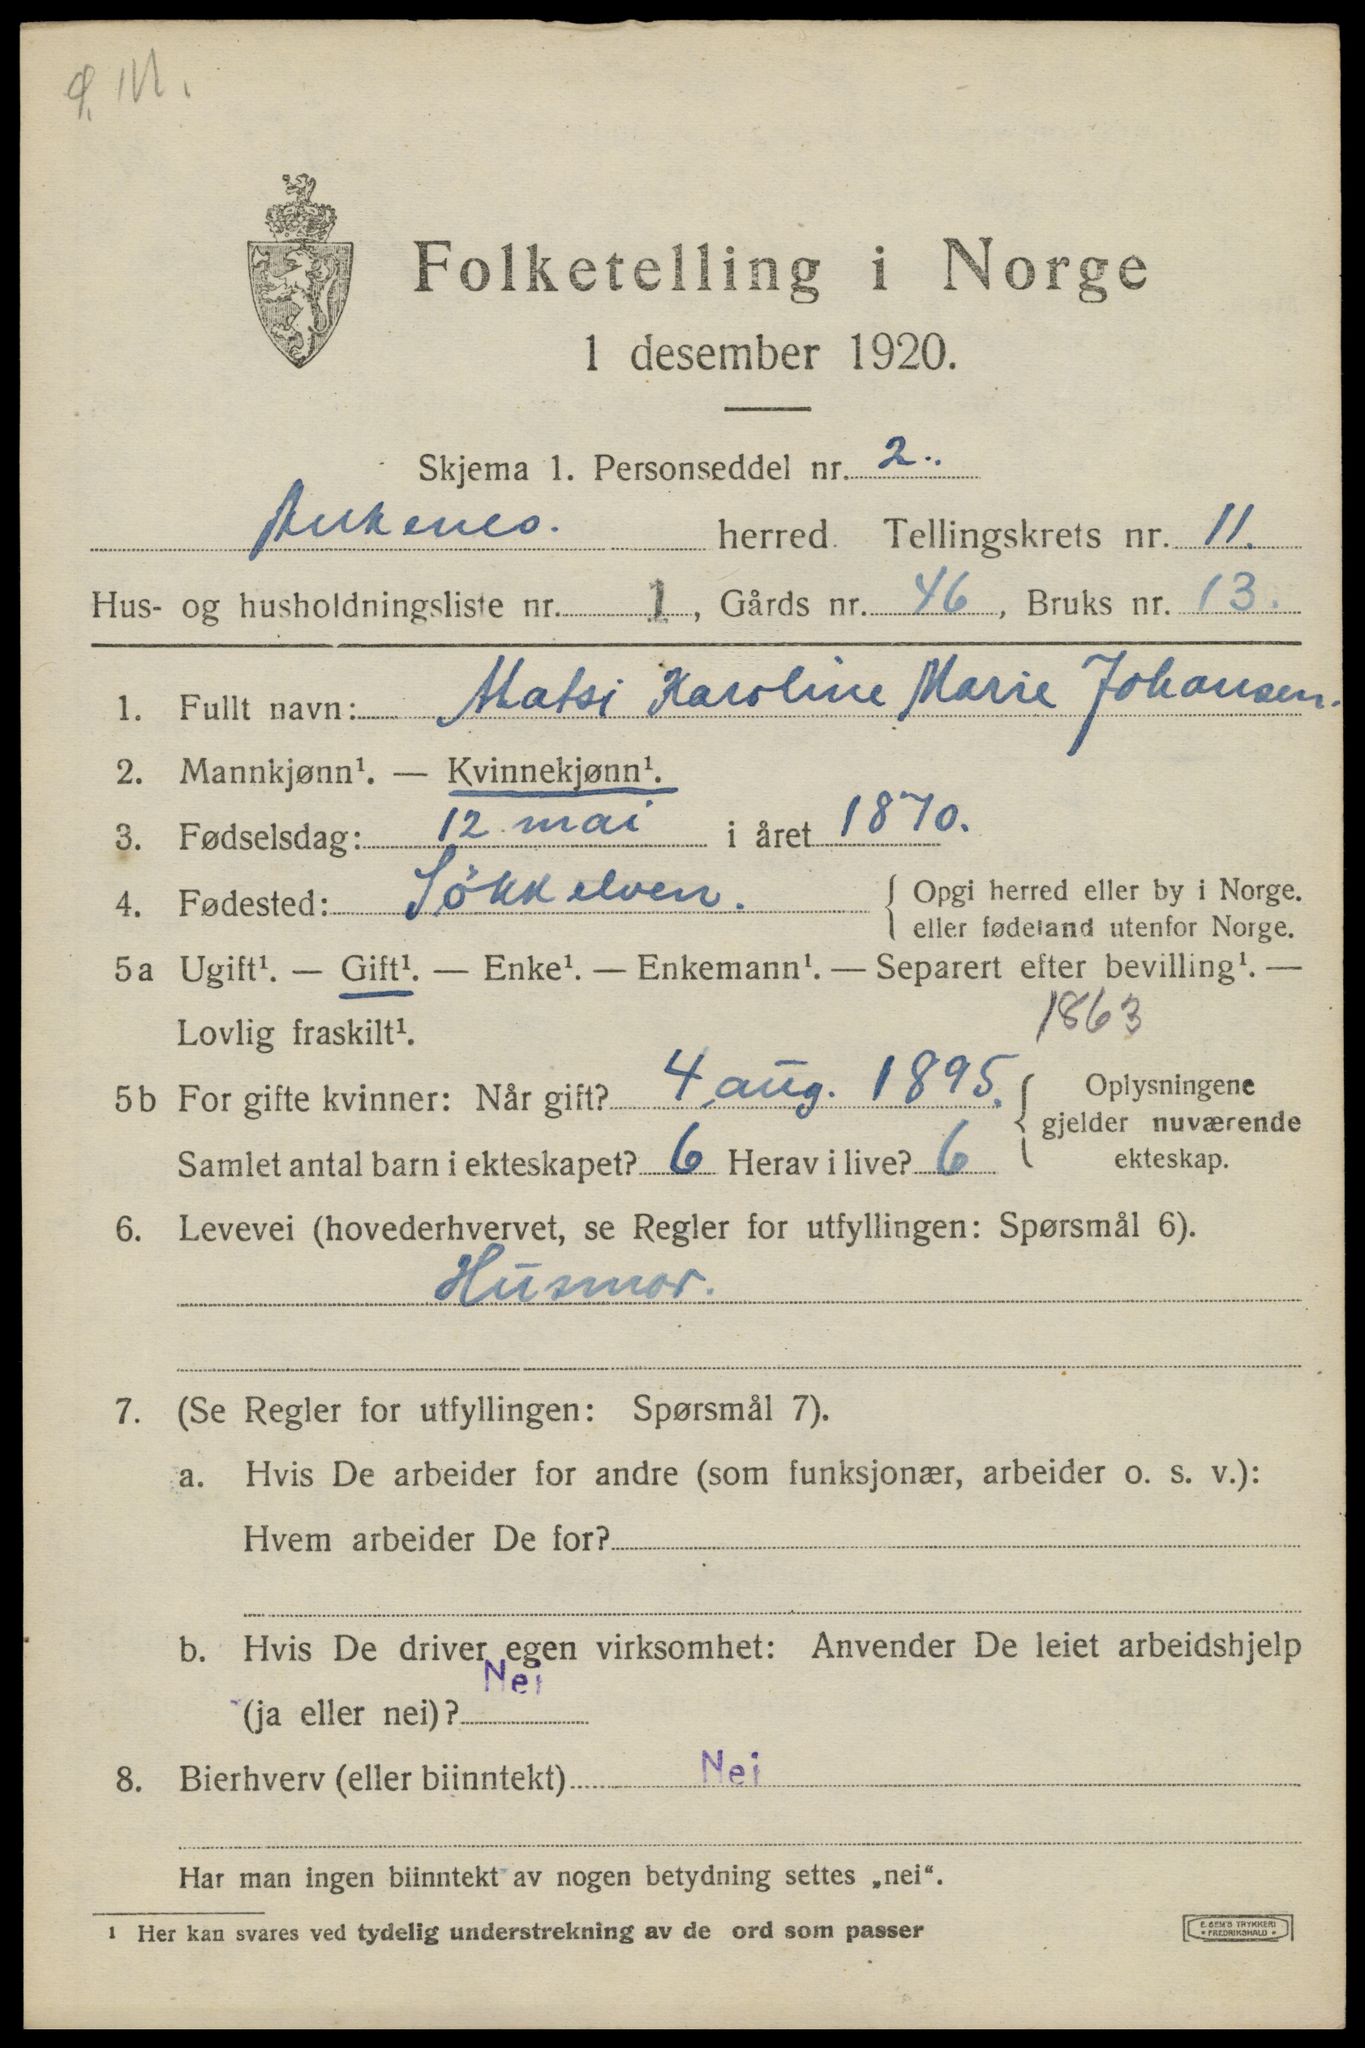 Folketelling i Norge
1 desember 1920.
Skjema 1. Personseddel nr. 2.
Ankenes. herred. Tellingskrets nr. 11.
Hus- og husholdningsliste nr. 1, Gårds nr. 46, Bruks nr. 13.
1. Fullt navn: Matsi Karoline Marie Johansen.
2. Mannkjønn¹. — Kvinnekjønn¹.
3. Fødselsdag: 12 mai i året 1870.
4. Fødested: Søkkelven. { Opgi herred eller by i Norge.
eller fødeland utenfor Norge.
5a Ugift¹. — Gift¹. — Enke¹. — Enkemann¹. — Separert efter bevilling¹. —
Lovlig fraskilt¹.
1863
5b For gifte kvinner: Når gift? 4 aug. 1895. { Oplysningene
gjelder nuværende
Samlet antal barn i ekteskapet? 6 Herav i live? 6 ekteskap.
6. Levevei (hovederhvervet, se Regler for utfyllingen: Spørsmål 6).
Husmor.
7. (Se Regler for utfyllingen: Spørsmål 7).
a. Hvis De arbeider for andre (som funksjonær, arbeider o. s. v.):
Hvem arbeider De for?
b. Hvis De driver egen virksomhet: Anvender De leiet arbeidshjelp
(ja eller nei)? Nei
8. Bierhverv (eller biinntekt) Nei
Har man ingen biinntekt av nogen betydning settes „nei“.
¹ Her kan svares ved tydelig understrekning av de ord som passer
E. SEM'S TRYKKERI
FREDRIKSHALD